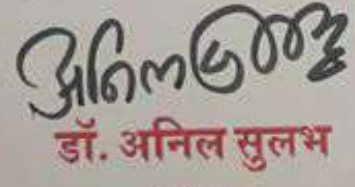 अनिल सुलभ
डॉ. अनिल सुलभ